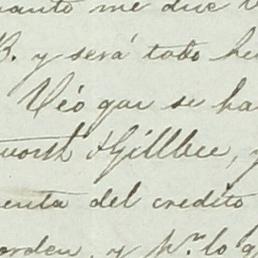 cuanto me dice V
B. y será todo he
Véo que se ha
worth & Gillbee, y
enta del credito
orden, y Mr. lo q